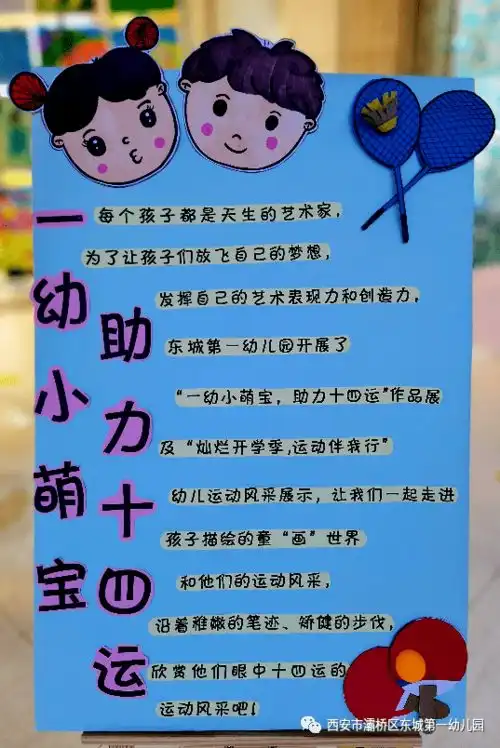 一幼小萌宝
助力十四运
每个孩子都是天生的艺术家，
为了让孩子们放飞自己的梦想，
发挥自己的艺术表现力和创造力，
东城第一幼儿园开展了
“一幼小萌宝，助力十四运”作品展
及“灿烂开学季，运动伴我行”
幼儿运动风采展示，让我们一起走进
孩子描绘的童“画”世界
和他们的运动风采，
沿着稚嫩的笔迹、矫健的步伐，
欣赏他们眼中十四运的
运动风采吧！
西安市灞桥区东城第一幼儿园